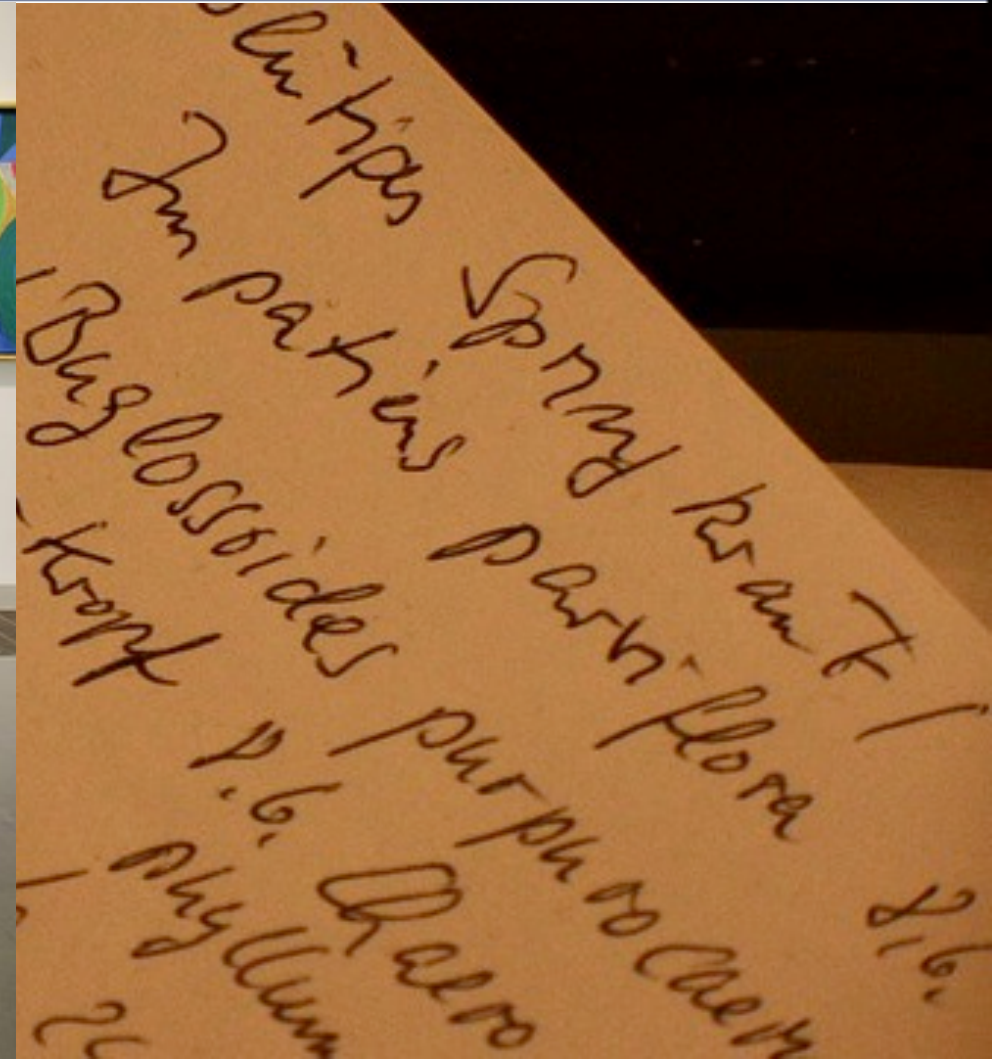 blütiges Springkraut /
Impatiens parviflora 8.6.
/ Buglossoides purpurocaer
-Kropf 8.6. Chaero
phyllum